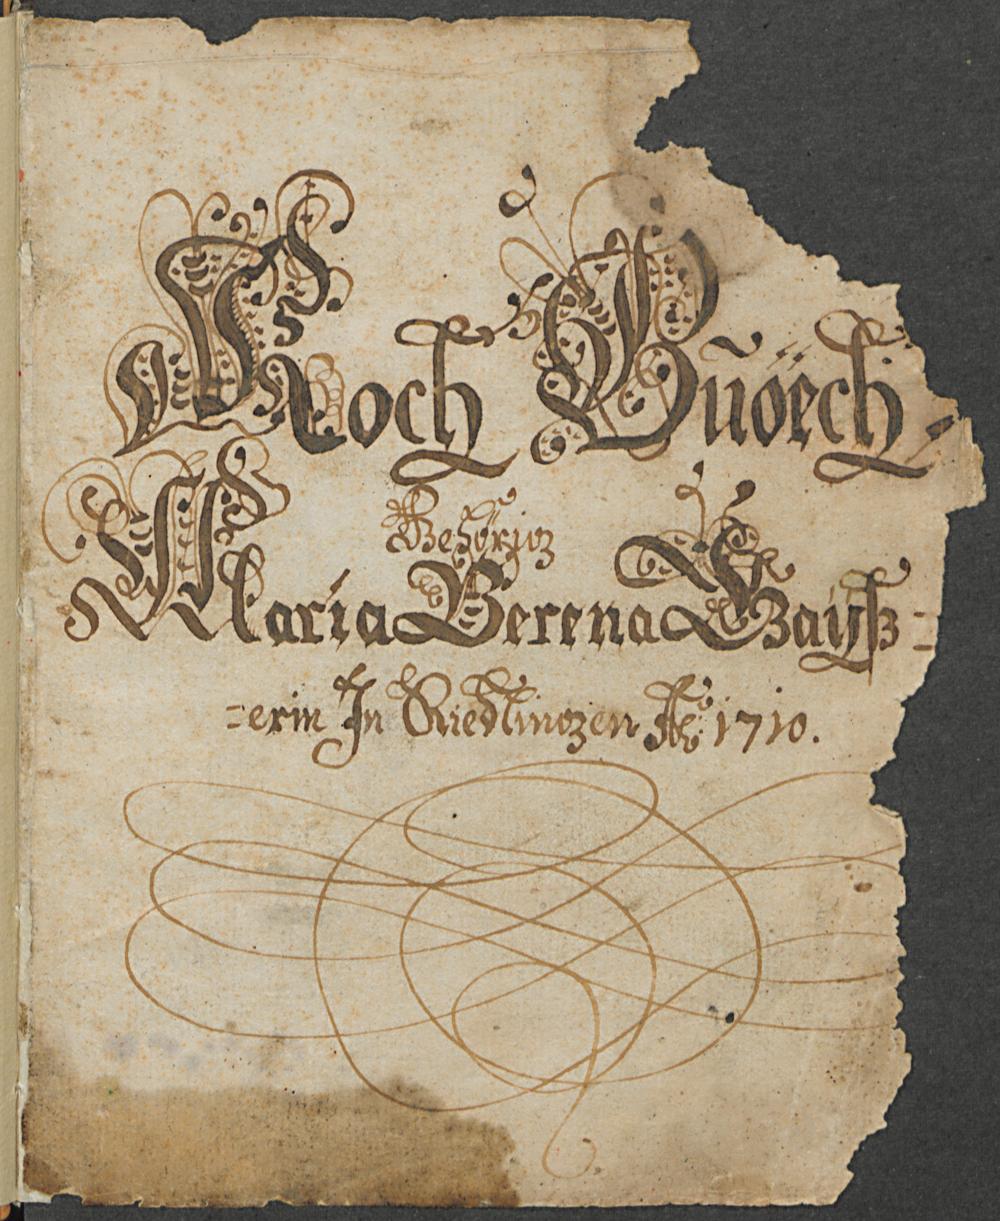 Koch Buöech
Gehörig
Maria Verena Gayß=
=erin In Riedlingen Ao: 1710.